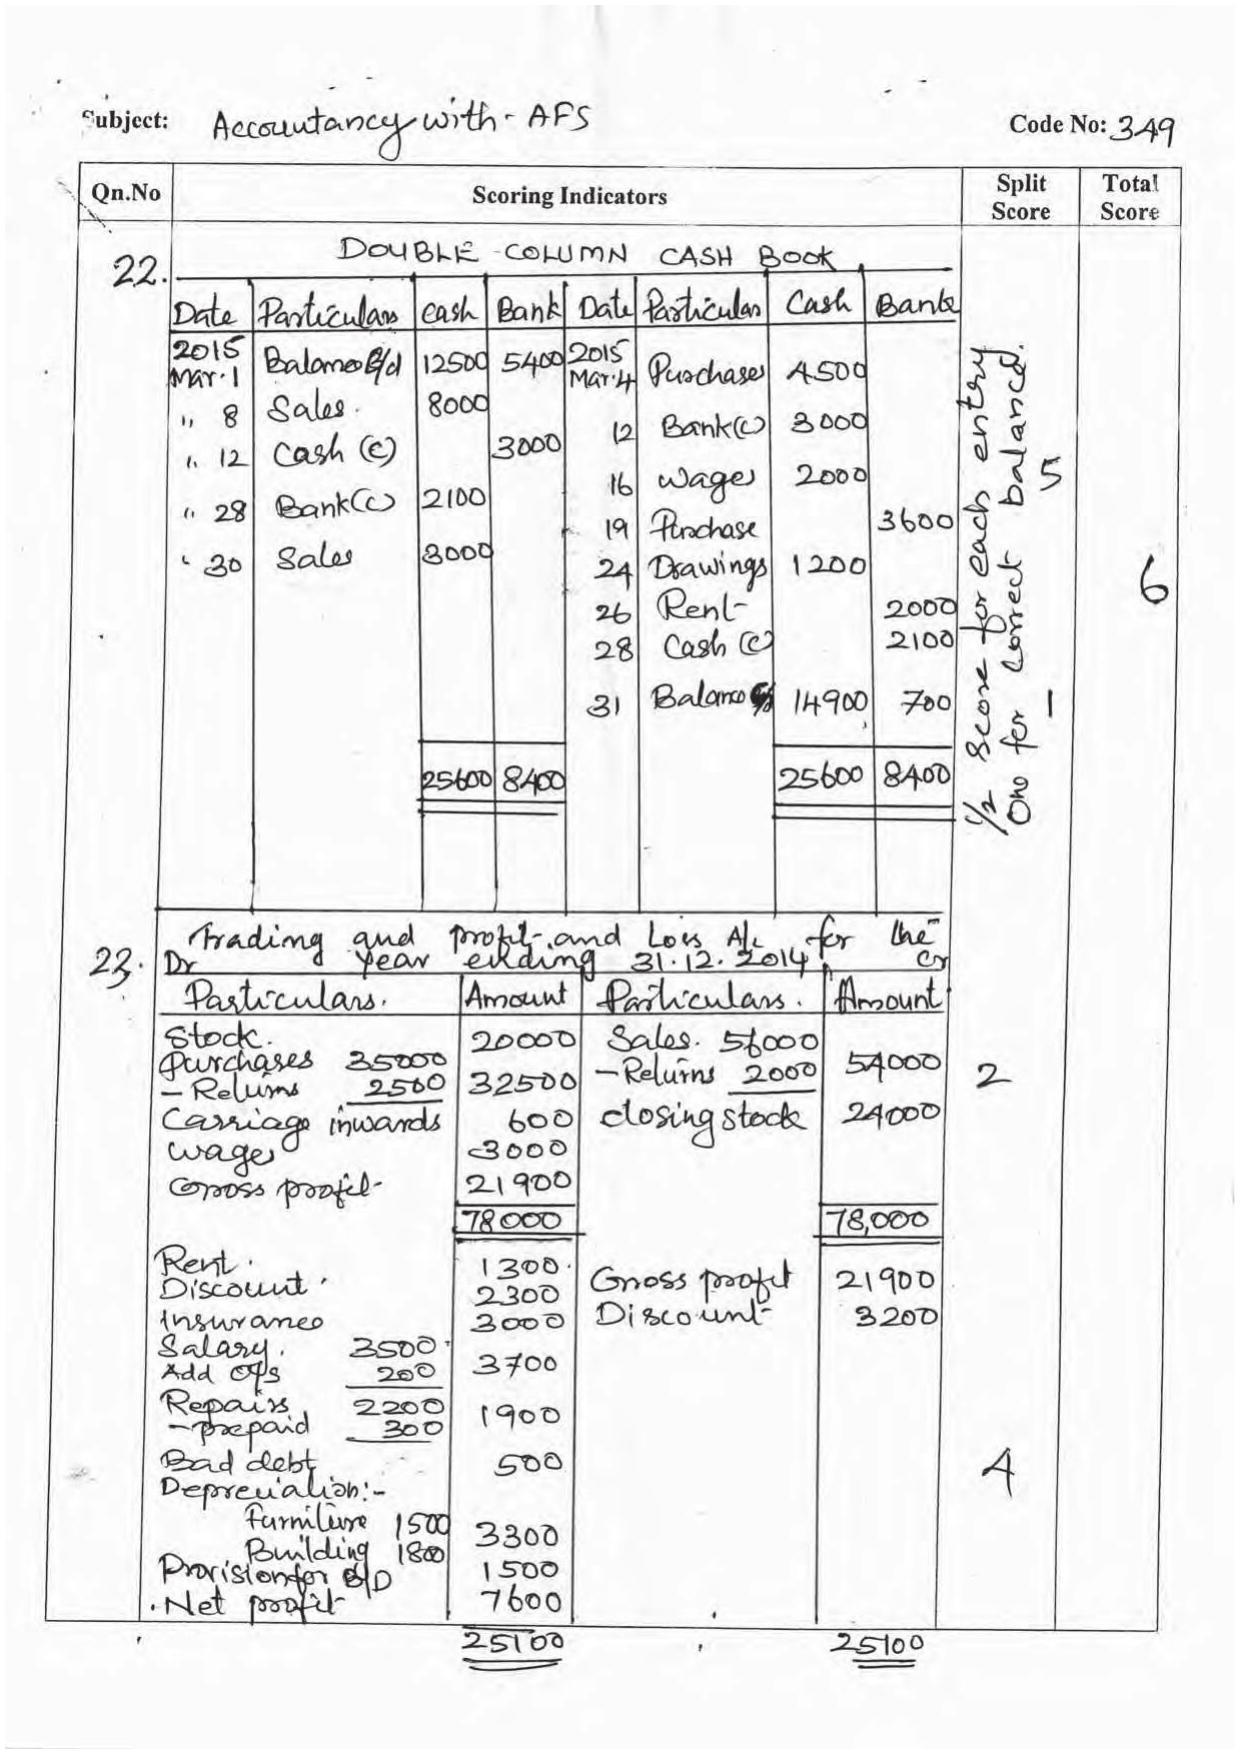 Subject: Accountancy with - AFS Code No: 349
Qn.No Scoring Indicators Split Score Total Score
22. DOUBLE - COLUMN CASH BOOK
Date Particulars cash Bank Date Particulars Cash Bank
2015 Mar.1 Balance B/d 12500 5400 2015 Mar.4 Purchases 4500
" 8 Sales. 8000 12 Bank(c) 3000
" 12 Cash (c) 3000 16 Wages 2000
" 28 Bank(c) 2100 19 Purchase 3600
" 30 Sales 3000 24 Drawings 1200
26 Rent- 2000
28 Cash (c) 2100
31 Balance c/d 14900 700
25600 8400 25600 8400
1/2 Score for each entry 5
One for correct balance. 1
6
23. Trading and profit and Loss A/c for the
Dr year ending 31.12.2014 Cr
Particulars. Amount Particulars. Amount
Stock. 20000 Sales. 56000
Purchases 35000
- Returns 2500 32500 - Returns 2000 54000 2
Carriage inwards 600 closing stock 24000
wages 3000
Gross profit- 21900
78000 78,000
Rent. 1300. Gross profit 21900
Discount 2300 Discount- 3200
Insurance 3000
Salary. 3500
Add O/s 200 3700
Repairs 2200
- prepaid 300 1900
Bad debt 500 4
Depreciation:-
Furniture 1500
Building 1800 3300
Provision for B/D 1500
Net profit 7600
25100 25100